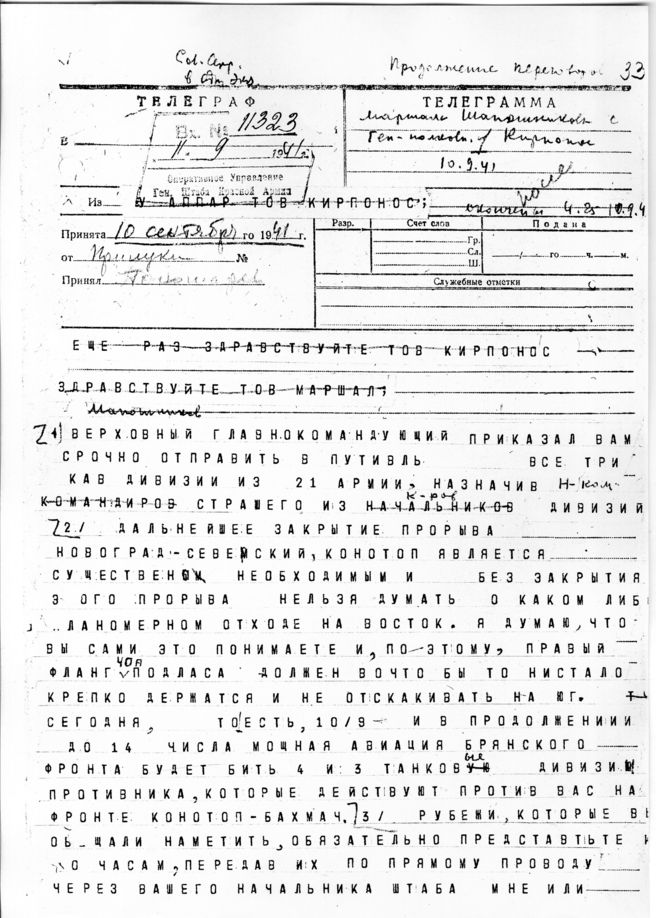 Продолжение переговоров 33
ТЕЛЕГРАФ
ТЕЛЕГРАММА
маршала Шапошникова с
Вх. № 11323
Ген-полковн. Кирпонос
11 9 1941 г.
10.9.41
Оперативное Управление
Ген. Штаба Красной Армии
Из У АППАР ТОВ КИРПОНОС;
окончены 4.25 10.9.4
Принята 10 сентября го 1941 г.
Разр. Счет слов Подана
от Прилуки №
Гр.
Сл.
го ч. м.
Ш.
Принял
Служебные отметки
ЕЩЕ РАЗ ЗДРАВСТВУЙТЕ ТОВ КИРПОНОС
ЗДРАВСТВУЙТЕ ТОВ МАРШАЛ;
Шапошников
1) ВЕРХОВНЫЙ ГЛАВНОКОМАНДУЮЩИЙ ПРИКАЗАЛ ВАМ
СРОЧНО ОТПРАВИТЬ В ПУТИВЛЬ ВСЕ ТРИ
КАВ ДИВИЗИИ ИЗ 21 АРМИИ, НАЗНАЧИВ Н-ком-
к-ров
КОМАНДИРОВ СТРАШЕГО ИЗ НАЧАЛЬНИКОВ ДИВИЗИЙ
2/ ДАЛЬНЕЙШЕЕ ЗАКРЫТИЕ ПРОРЫВА
НОВОГРАД-СЕВЕРСКИЙ, КОНОТОП ЯВЛЯЕТСЯ
СУЩЕСТВЕННО НЕОБХОДИМЫМ И БЕЗ ЗАКРЫТИЯ
Э ОГО ПРОРЫВА НЕЛЬЗЯ ДУМАТЬ О КАКОМ ЛИБ
ЛАНОМЕРНОМ ОТХОДЕ НА ВОСТОК. Я ДУМАЮ, ЧТО
ВЫ САМИ ЭТО ПОНИМАЕТЕ И, ПО-ЭТОМУ, ПРАВЫЙ
40А
ФЛАНГ ПОДЛАСА ДОЛЖЕН ВОЧТО БЫ ТО НИСТАЛО
КРЕПКО ДЕРЖАТСЯ И НЕ ОТСКАКИВАТЬ НА ЮГ.
СЕГОДНЯ, ТОЕСТЬ, 10/9- И В ПРОДОЛЖЕНИИИ
ДО 14 ЧИСЛА МОЩНАЯ АВИАЦИЯ БРЯНСКОГО
ые
ФРОНТА БУДЕТ БИТЬ 4 И 3 ТАНКОВУЮ ДИВИЗИИ
ПРОТИВНИКА, КОТОРЫЕ ДЕЙСТВУЮТ ПРОТИВ ВАС НА
ФРОНТЕ КОНОТОП-БАХМАЧ. 3/ РУБЕЖИ, КОТОРЫЕ В
ОБ ЩАЛИ НАМЕТИТЬ, ОБЯЗАТЕЛЬНО ПРЕДСТАВТЬТЕ
О ЧАСАМ, ПЕРЕДАВ ИХ ПО ПРЯМОМУ ПРОВОДУ
ЧЕРЕЗ ВАШЕГО НАЧАЛЬНИКА ШТАБА МНЕ ИЛИ